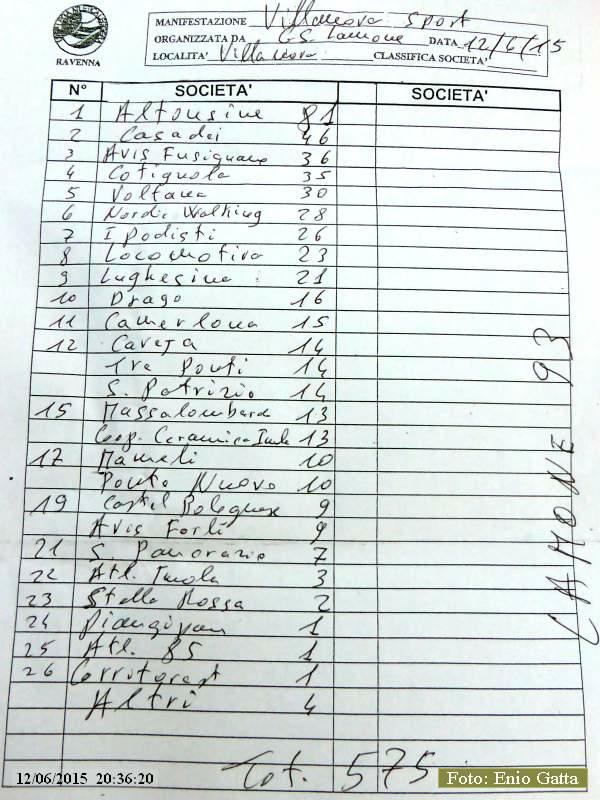 RAVENNA
MANIFESTAZIONE Villanova Sport
ORGANIZZATA DA GS Lamone DATA 12/6/15
LOCALITA' Villanova CLASSIFICA SOCIETA'
N° SOCIETA' SOCIETA'
1 Alfonsine 81
2 Casadei 46
3 Avis Fusignano 36
4 Cotignola 35
5 Voltana 30
6 Nordic Walking 28
7 I podisti 26
8 Locomotiva 23
9 Lughesina 21
10 Drago 16
11 Camerlona 15
12 Caveja 14
Tre Ponti 14
S. Patrizio 14
15 Massalombarda 13
Coop. Ceramica Imola 13
17 Mameli 10
Ponte Nuovo 10
19 Castel Bolognese 9
Avis Forlì 9
21 S. Pancrazio 7
22 Atl. Imola 3
23 Stella Rossa 2
24 Piangipane 1
25 Atl. 85 1
26 Corriforest 1
Altri 4
Tot. 575
LAMONE 93
12/06/2015 20:36:20
Foto: Enio Gatta